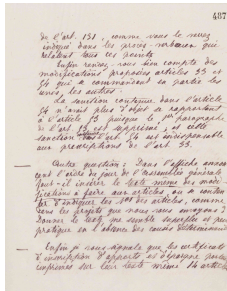 487
de l'art. 131, comme vous le verrez
indiqué dans les procès-verbaux qui
relatent tous ces points.
Enfin rendez-vous bien compte des
modifications proposées articles 33 et
74 qui se commandent en partie les
unes, les autres.
La sanction contenue dans l'article
74 n'avait plus d'objet se rapportant
à l'article 73 puisque le paragraphe
de l'art 73 est supprimé, et cette
sanction 74 est indispensable
aux prescriptions de l'art. 33.
Autre question : Dans l'affiche annon
cant l'ordre du jour de l'assemblée générale
faut-il insérer le texte même des modi
fications à faire aux articles, ou se conten
ter d'indiquer les Nos des articles, comme
dans les projets que nous vous envoyons ?
Donner le texte me semble superflu et peu
pratique en l'absence des
Enfin je vous signale que les certificats
d'inscription d'apports et d'épargne portent
imprimés sur leur texte même 14 articles